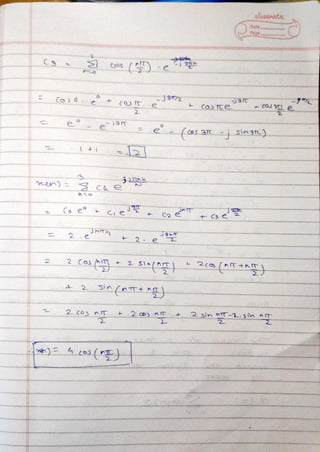 classmate
Date
Page
C3 = Σ n=0 cos (nπ/2) · e
= cos 0 · e^0 + cos π/2 e^-j3π/2 + cos π e^-j3π + cos 3π/2 e
= e^0 - e^-j3π = e^0 - (cos 3π - j sin 3π)
= 1 + 1 = 2
x(n) = 3 Σ n=0 Ck e^j2πnk/N
= C0 e^0 + C1 e^jnπ/2 + C2 e^jnπ + C3 e^j3nπ/2
= 2 · e^jnπ/2 + 2 · e^j3nπ/2
= 2 cos (nπ/2) + 2 sin (nπ/2) + 2 cos (nπ + nπ/2)
+ 2 sin (nπ + nπ/2)
= 2 cos nπ/2 + 2 cos nπ/2 + 2 sin nπ/2 - 2 · sin nπ/2
x(n) = 4 cos (nπ/2)